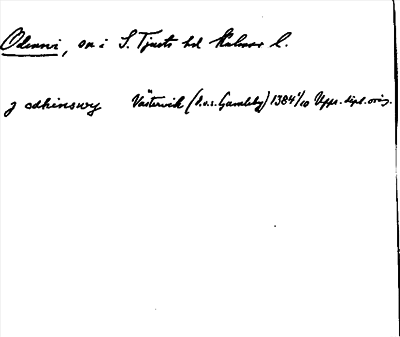 Odensvi, sn i S. Tjusts hd Kalmar l.
j odhinswy Västervik (d.v.s. Gamleby) 1384 1/10 Upps. dipl. orig.